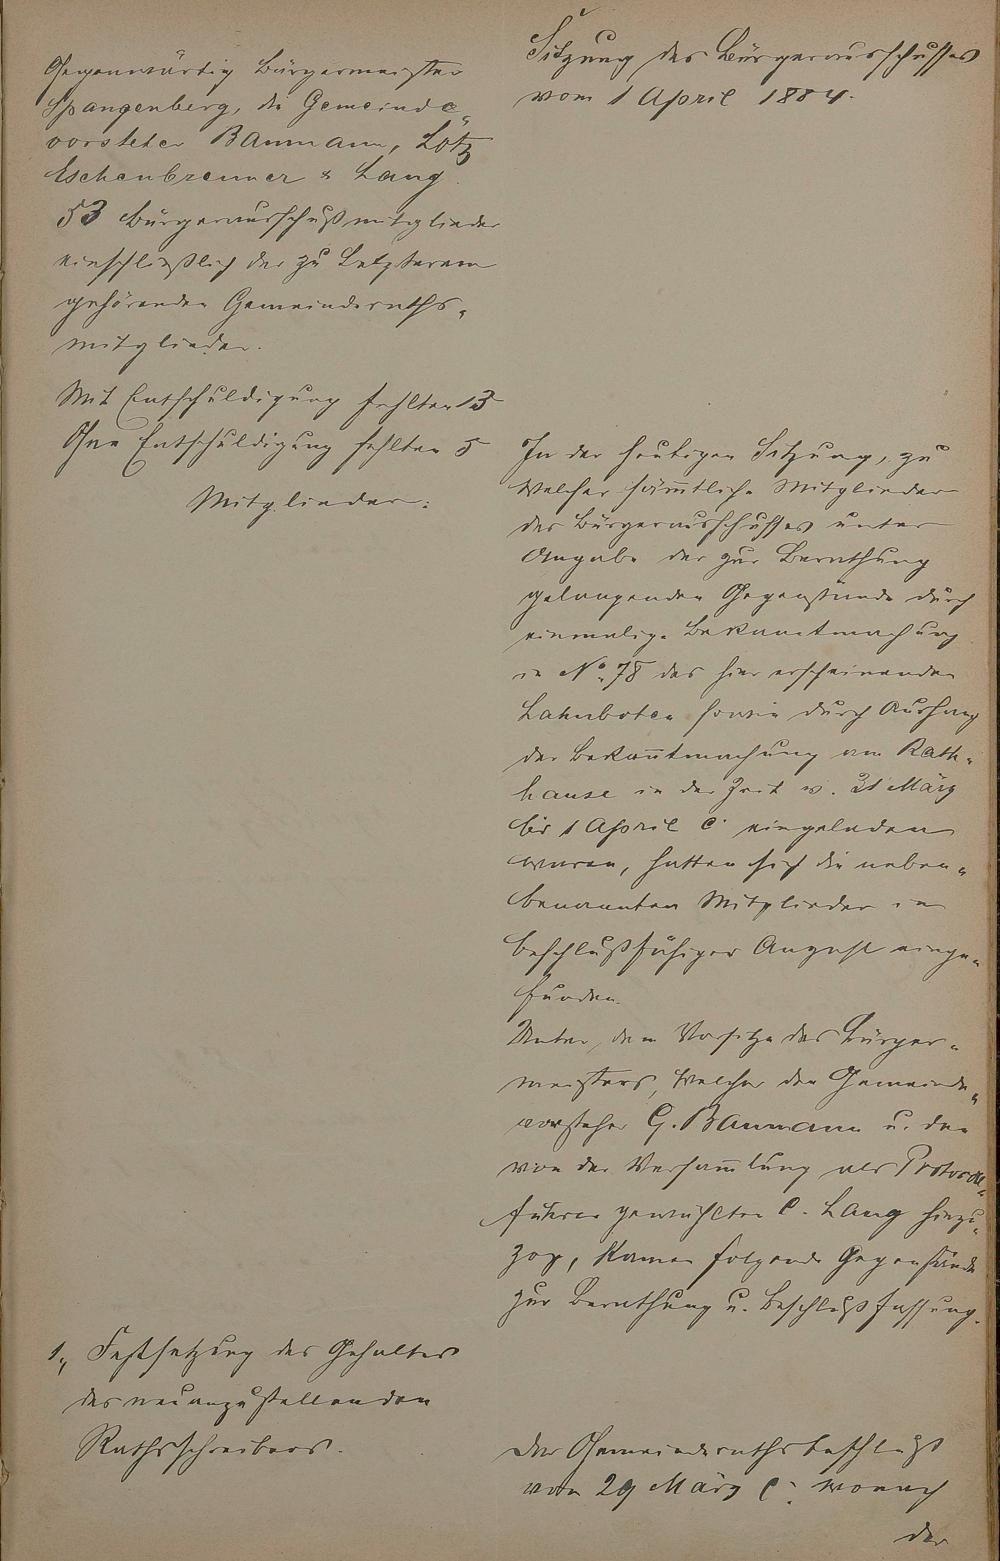 Gegenwärtig Bürgermeister
Spangenberg, die Gemeinde-
vorsteher Baumann, Lotz
Eschenbrenner & Lang
53 Bürgerausschußmitglieder
einschließlich der zu Letzterem
gehörenden Gemeinderaths-
mitglieder.
Mit Entschuldigung fehlten 13
Ohne Entschuldigung fehlten 5
Mitglieder:
1, Festsetzung des Gehaltes
des neuanzustellenden
Rathsschreibers.
Sitzung des Bürgerausschusses
vom 1 April 1884.
In der heutigen Sitzung, zu
welcher sämmtliche Mitglieder
des Bürgerausschusses unter
Angabe der zur Berathung
gelangenden Gegenstände durch
einmalige Bekanntmachung
in No. 78 des hier erscheinenden
Lahnboten sowie durch Aushang
der Bekanntmachung am Rath-
hause in der Zeit v. 31 März
bis 1 April c. eingeladen
waren, hatten sich die neben-
benannten Mitglieder in
beschlußfähiger Anzahl einge-
funden.
Unter dem Vorsitze des Bürger-
meisters, welcher den Gemeinde-
vorsteher G. Baumann u. den
von der Versammlung als Protocoll-
führer gewählten C. Lang hinzu-
zog, kamen folgende Gegenstände
zur Berathung u. Beschlußfassung.
Der Gemeinderathsbeschluß
vom 29 März c. wonach
der